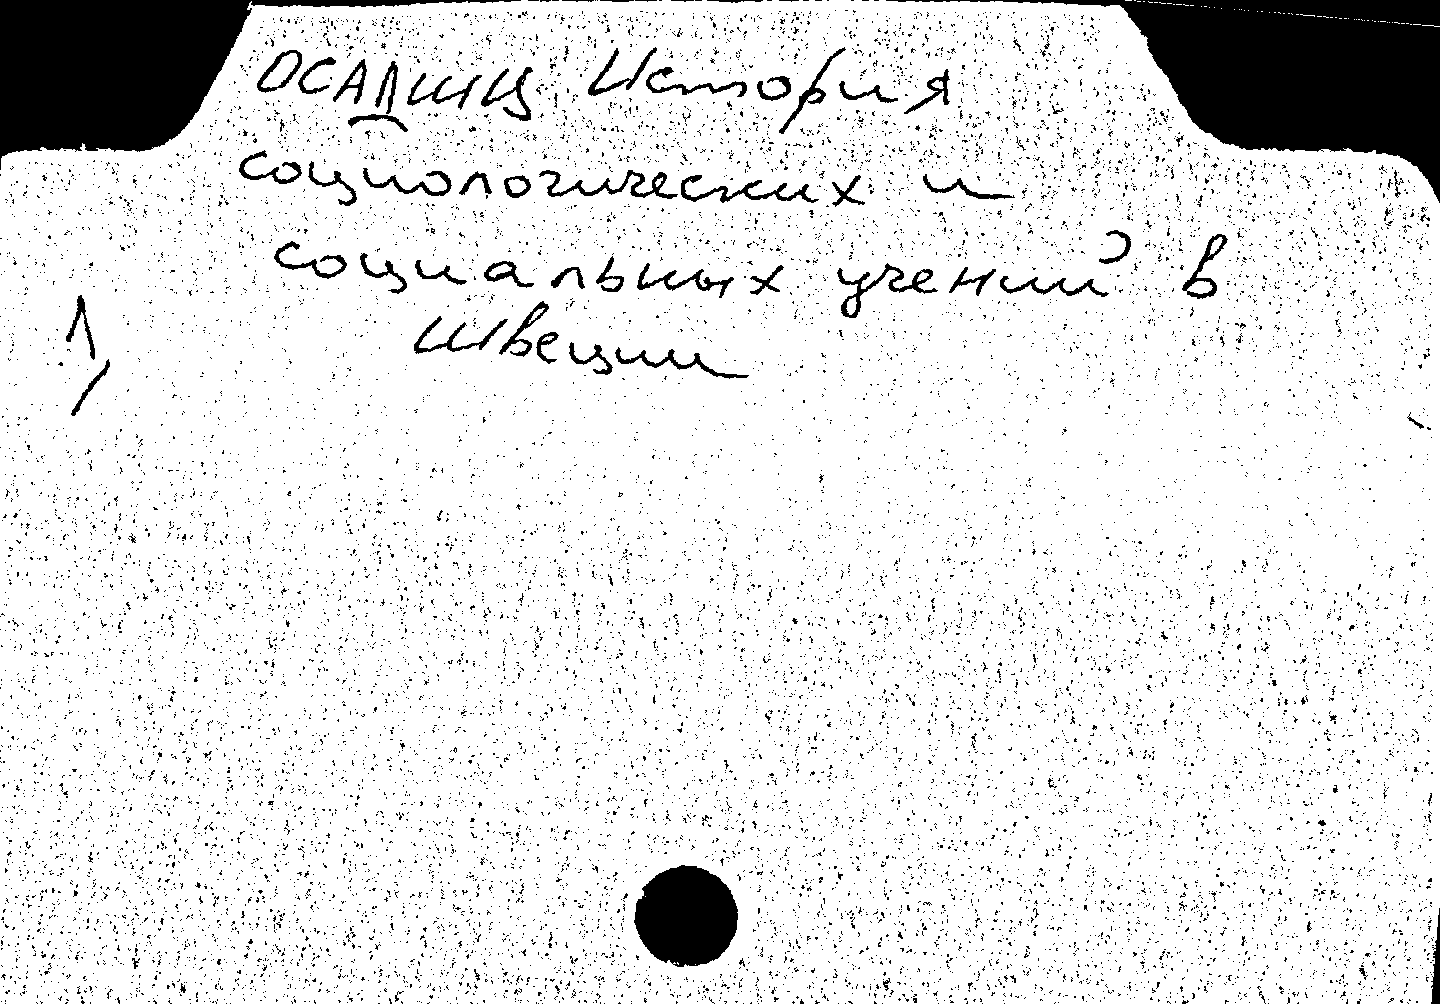 История
социологических и
социальных учений в
Швеции